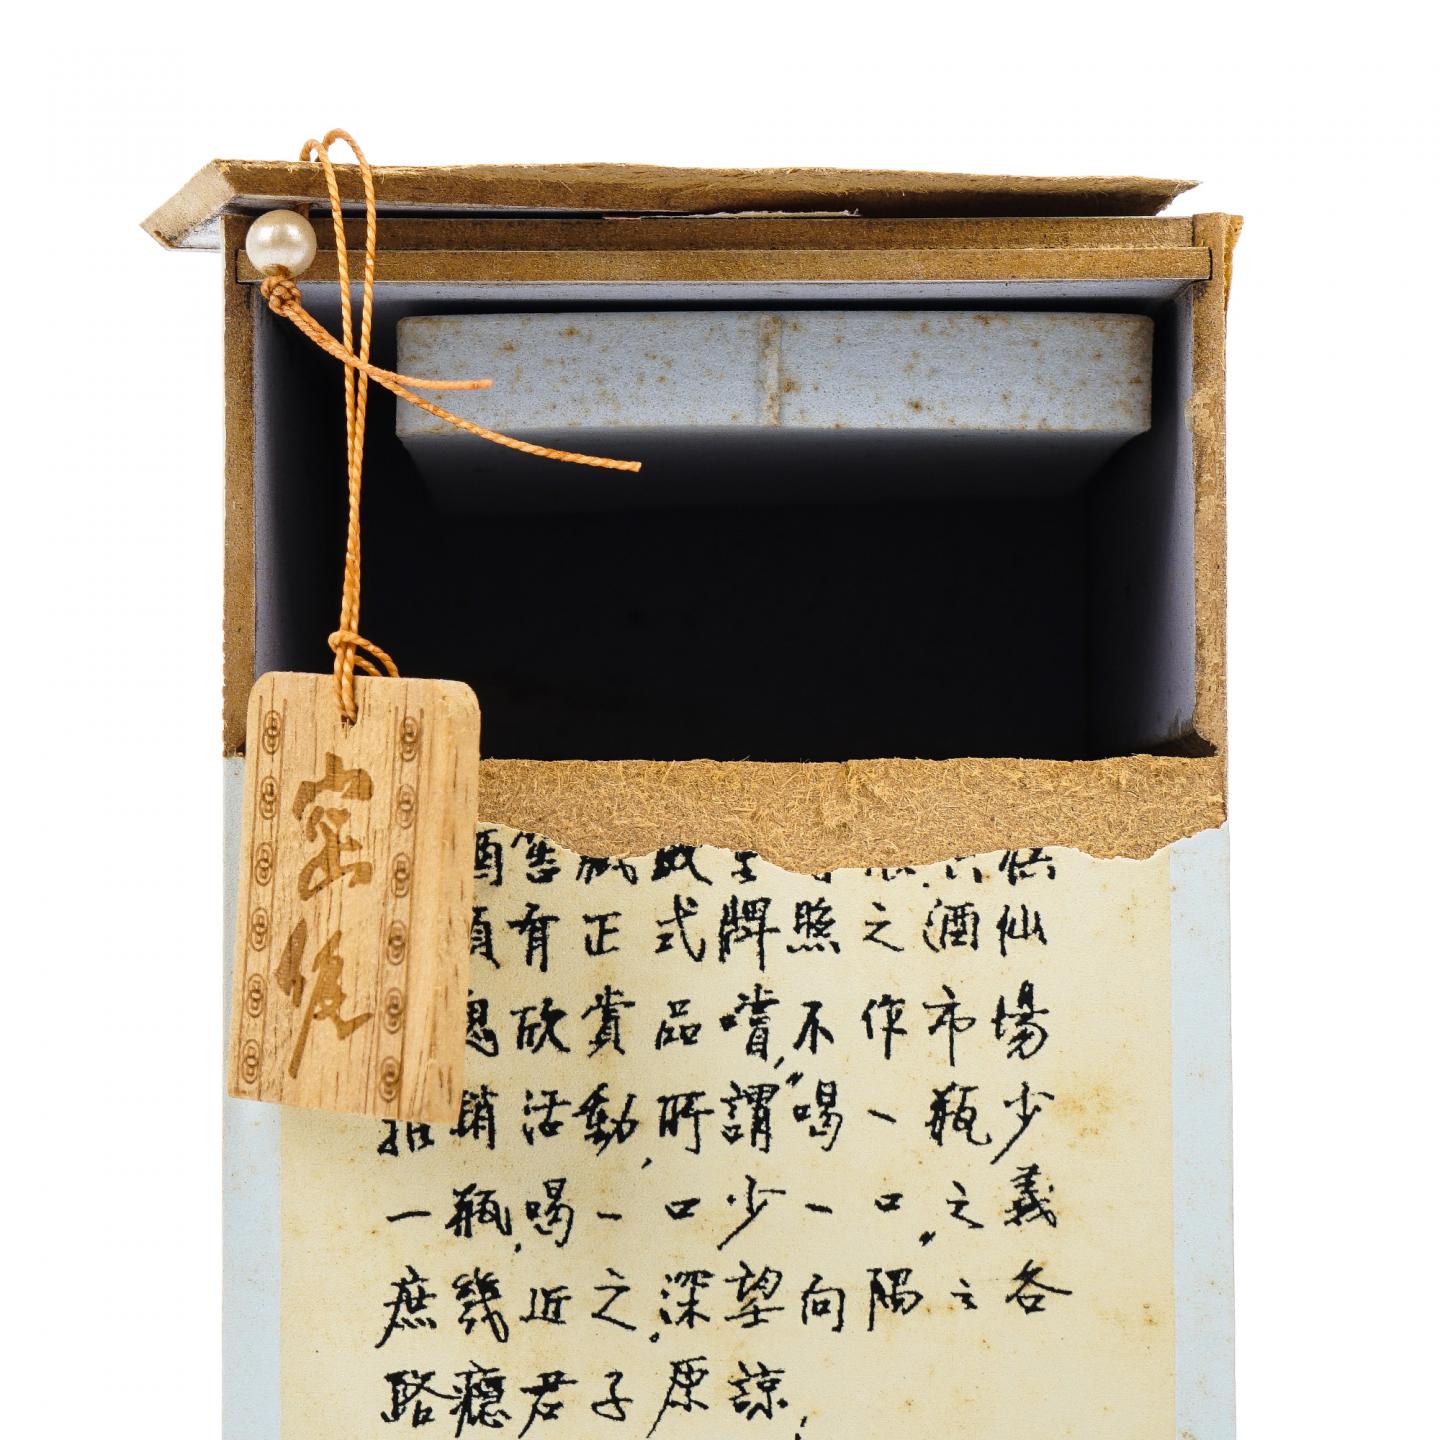 有正式牌照之酒仙
欣賞品嚐,不作市場
推銷活動,所謂"喝一瓶少
一瓶,喝一口少一口"之義
庶幾近之.深望向隅之各
路癮君子原諒,